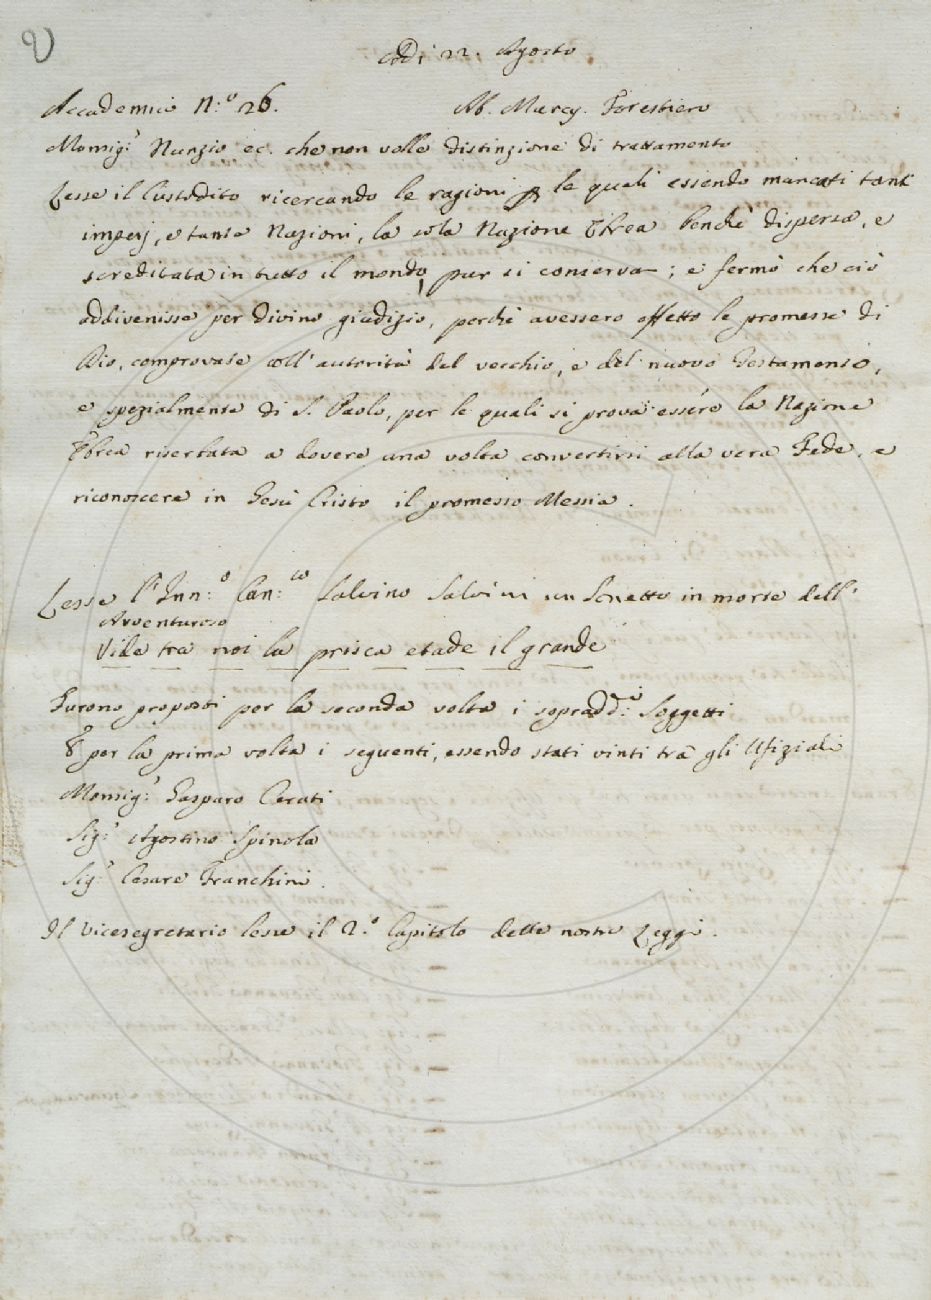 V
Adì 22. Agosto
Accademici N:o 26. Ab. Marcy. Forestiero
Monsig:r Nunzio ec. che non volle distinzione di trattamento
Lesse il Custodito ricercando le ragioni p le quali essendo mancati tanti
imperj, e tante Nazioni, la sola Nazione Ebrea benchè dispersa, e
screditata in tutto il mondo, pur si conserva; e fermò che ciò
addivenisse per divino giudizio, perchè avessero effetto le promesse di
Dio, comprovate coll'autorità del vecchio, e del nuovo Testamento,
e spezialmente di S. Paolo, per le quali si prova essere la Nazione
Ebrea riserbata a dovere una volta convertirsi alla vera Fede, e
riconoscere in Gesù Cristo il promesso Messia.
Lesse l'Inn:o Can:co Salvino Salvini un Sonetto in morte dell'
Avventuroso
Vide tra noi la prisca etade il grande
Furono proposti per la seconda volta i sopradd:i Soggetti
E per la prima volta i seguenti, essendo stati vinti tra gli Ufiziali
Monsig:r Gasparo Cerati
Sig:r Agostino Spinola
Sig:r Cesare Franchini.
Il Vicesegretario lesse il 2.o Capitolo delle nostre Leggi.